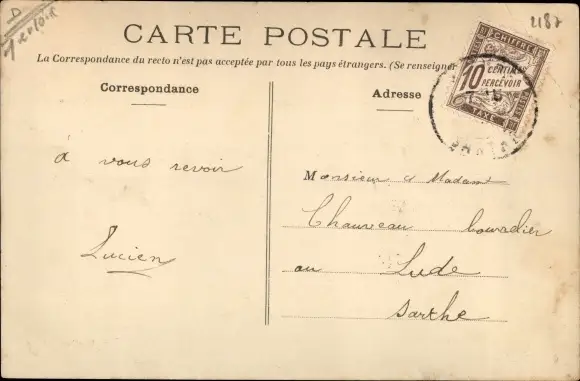 D
2187
CARTE POSTALE
La Correspondance du recto n'est pas acceptée par tous les pays étrangers. (Se renseigner
Correspondance
Adresse
CHIFFRE
10 CENTIMES
PERCEVOIR
TAXE
à vous revoir
Lucien
Monsieur & Madame
Chauveau bourrelier
au Lude
Sarthe